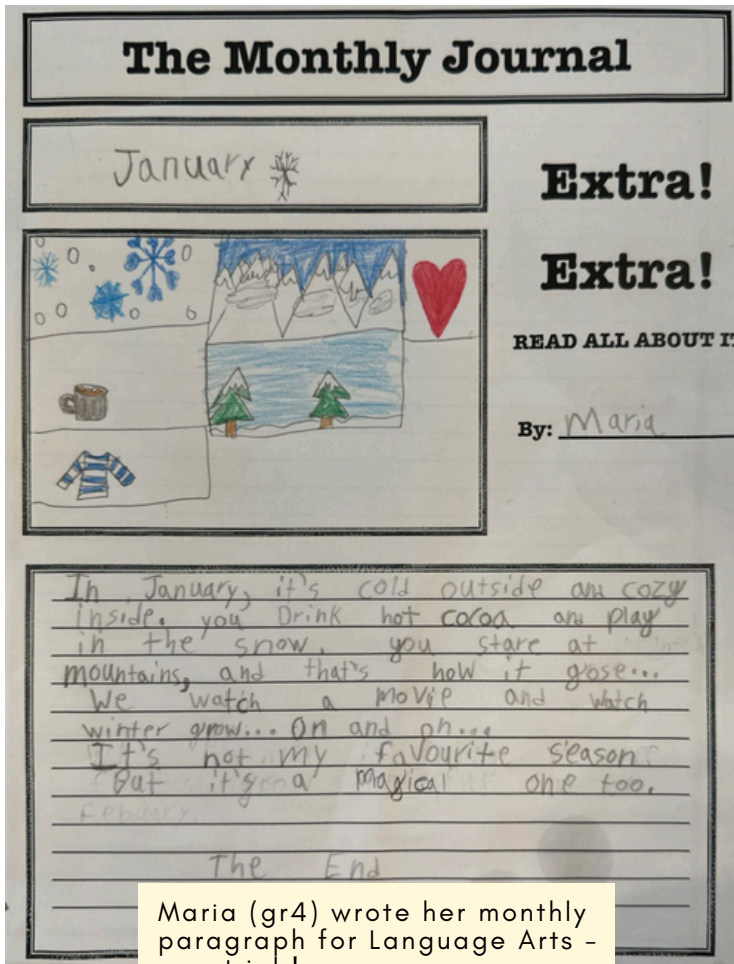 The Monthly Journal
January
Extra!
Extra!
READ ALL ABOUT IT
By: Maria
In January, it's cold outside and cozy
inside. you Drink hot cocoa and play
in the snow. you stare at
mountains, and that's how it gose...
We watch a movie and watch
winter grow... On and on...
It's not my favourite season
But it's a magical one too.
The End
Maria (gr4) wrote her monthly
paragraph for Language Arts –